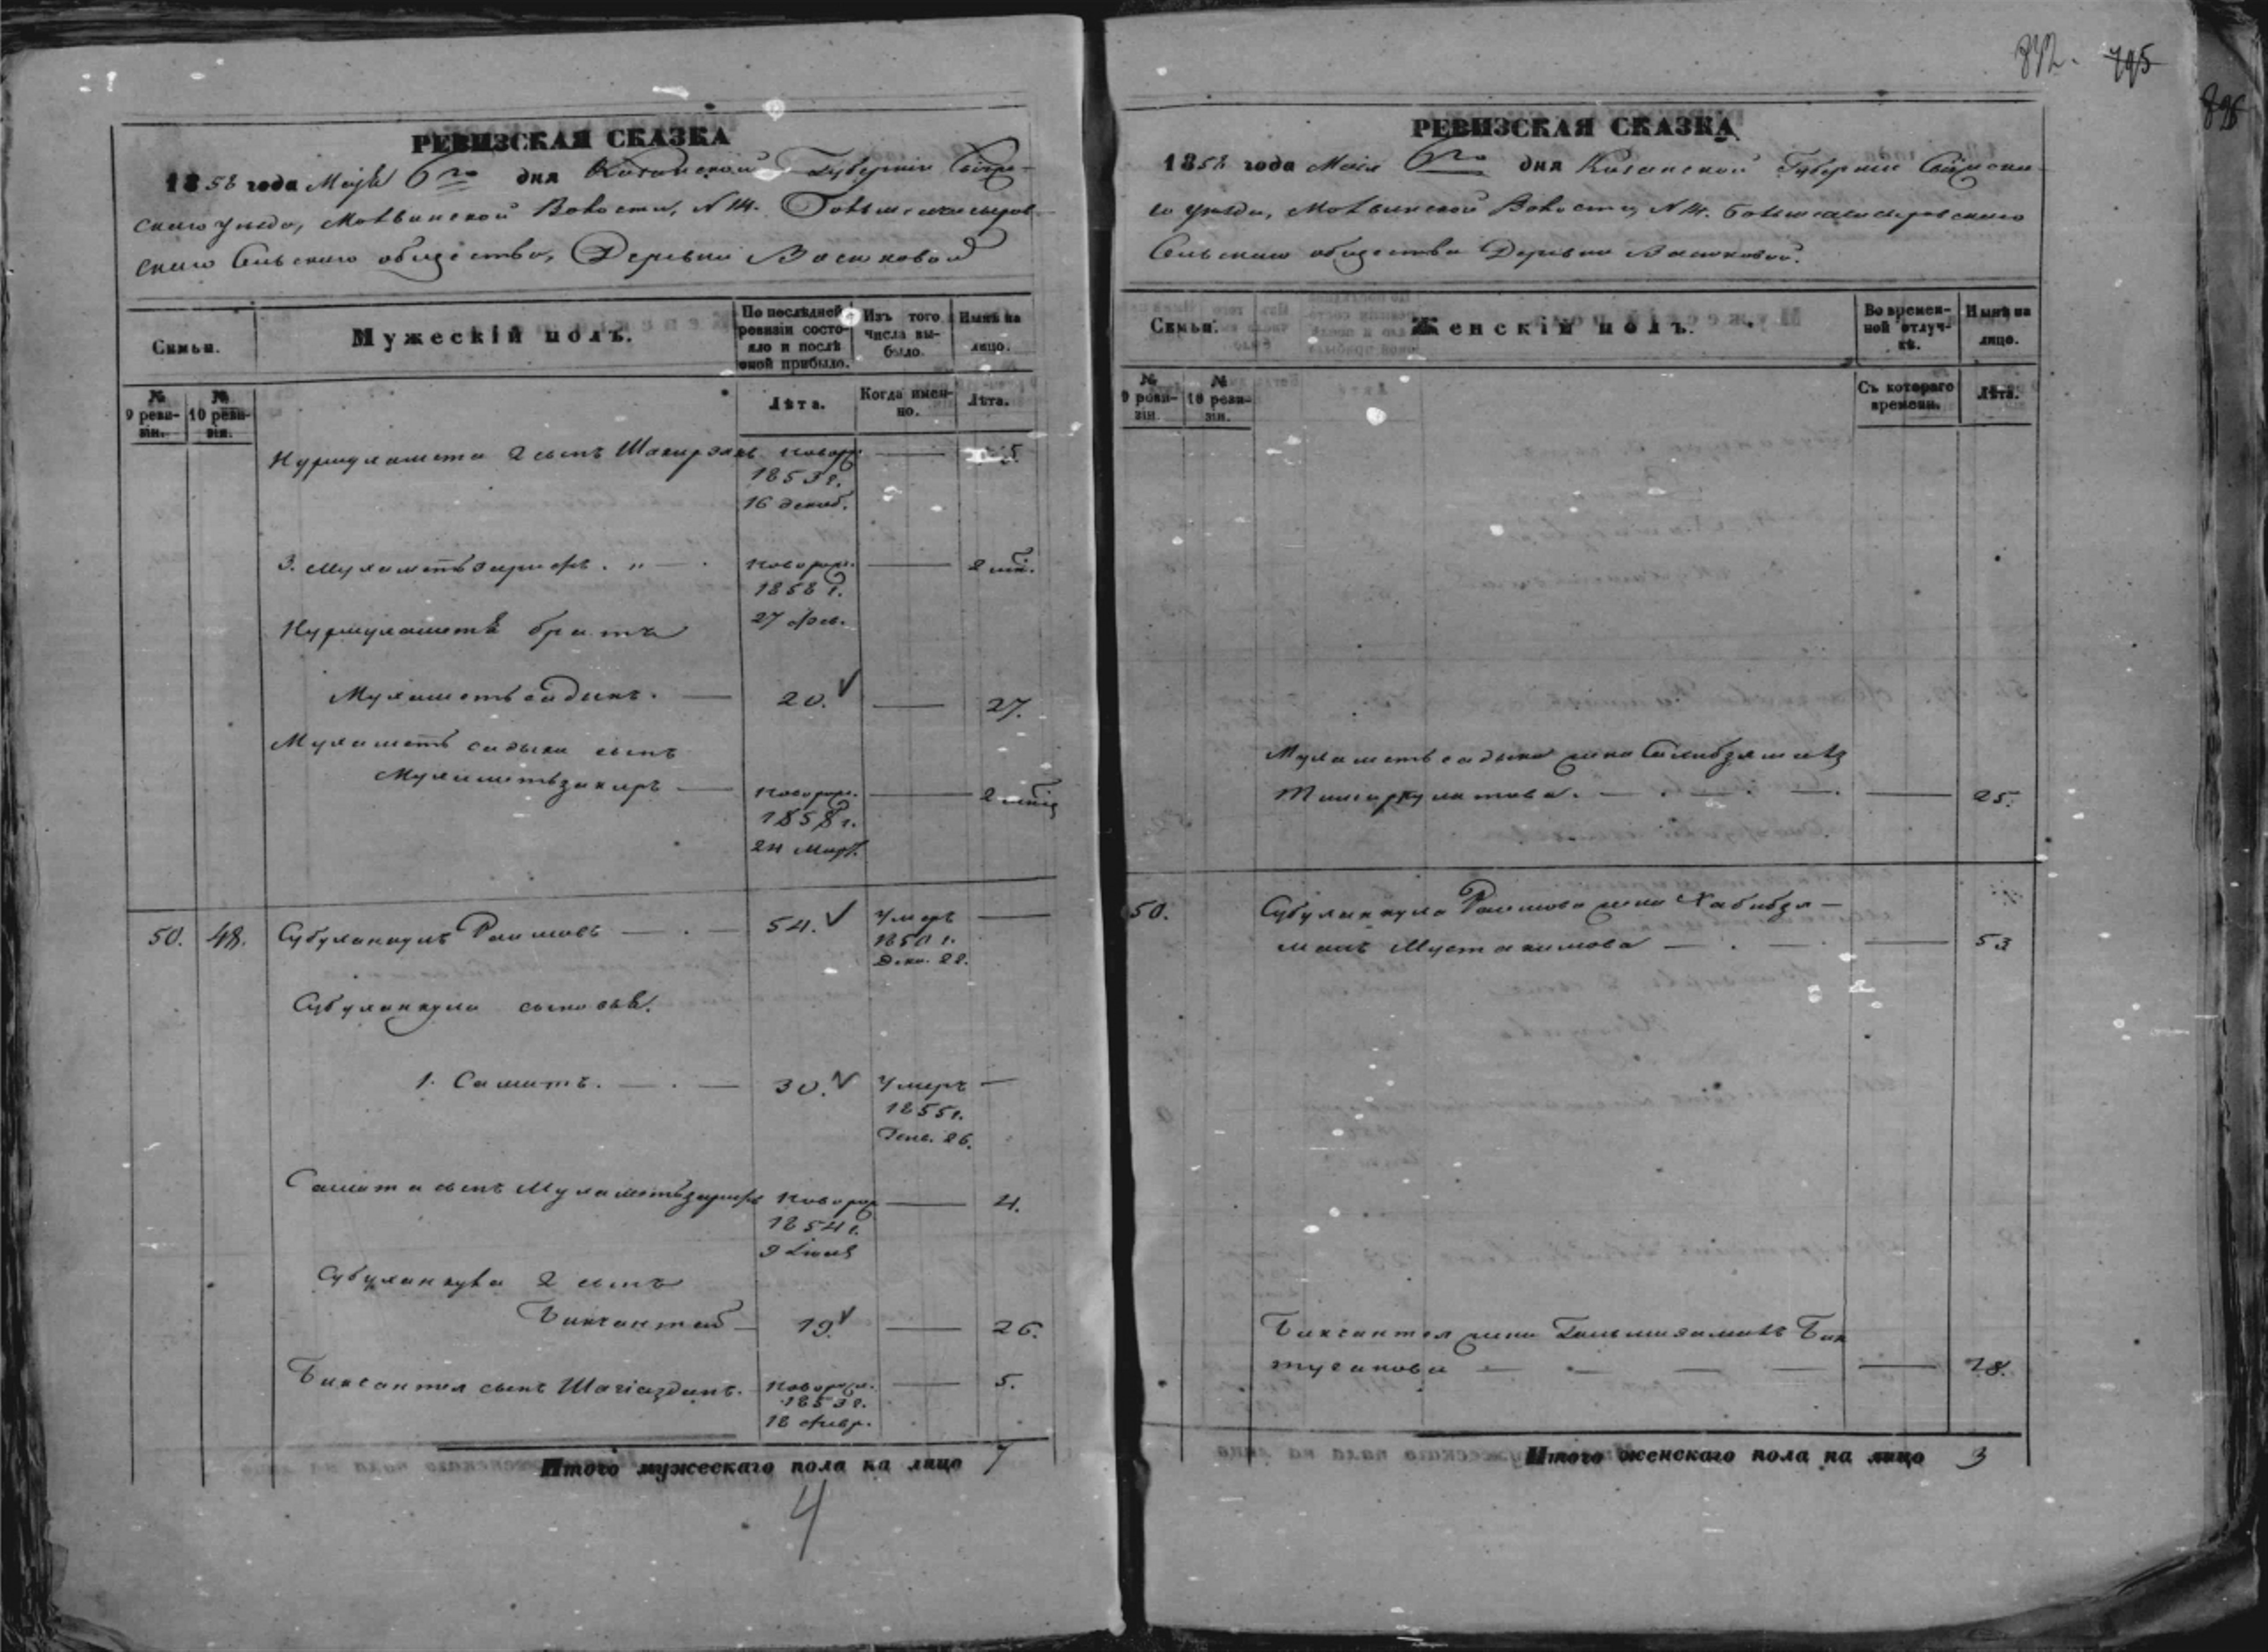 842. 795
896
РЕВИЗСКАЯ СКАЗКА
1858 года Маія 6го дня Казанской Губерніи Свіяж-
скаго уезда, Молвинской Волости, № 14.
скаго Сельскаго общества, Деревни Васюковой
Семьи.
Мужескій полъ.
По последней ревизіи состо-яло и послѣ оной прибыло.
Изъ того числа вы-было.
Нынѣ на лицо.
№ 9 реви-зіи.
№ 10 реви-зіи.
Лѣта.
Когда имен-но.
Лѣта.
Нурмухамета 2 сынъ новорж. — 5
1853 г.
16 декаб.
3. Мухаметь зарифъ. " — . новорож. — 2 мѣс.
1858 г.
27 фев.
Нурмухаметѣ братъ
Мухаметь садыкъ. — 20. — 27.
Мухаметь садыка сынъ
Мухаметьзакиръ — новорж. — 2 мѣс
1858 г.
24 Март.
50. 48. Субуханкулъ Раимовъ — . — 54. Умеръ —
1850 г.
Дек. 22.
Субуханкула сыновья.
1. Самитъ. — . — 30. Умеръ —
1855 г.
Генв. 26.
Самита сынъ Мухаметьзарифъ новорож — 4.
1854 г.
9 Іюля
Субуханкула 2 сынъ
Биксантей — 19 — 26.
Биксантея сынъ Шагіаздинъ. новорож. — 5.
1853 г.
18 февр.
Итого мужескаго пола на лицо 7
4
РЕВИЗСКАЯ СКАЗКА
1858 года Маія 6го дня Казанской Губерніи Свіяжска-
го уезда, Молвинской Волости, № 14.
Сельскаго общества Деревни Васюковой.
Семьи.
Женскій полъ.
Во времен-ной отлуч-кѣ.
Нынѣ на лицо.
№ 9 реви-зіи.
№ 10 реви-зіи.
Съ котораго времени.
Лѣта.
Мухаметь садыка жена
— . — . — — 25.
50. Субуханкула Раимова жена Хабибзя-
малъ Мустакимова — . — — 53
Биксантея жена Бик
— . — — — 28.
Итого женскаго пола на лицо 3